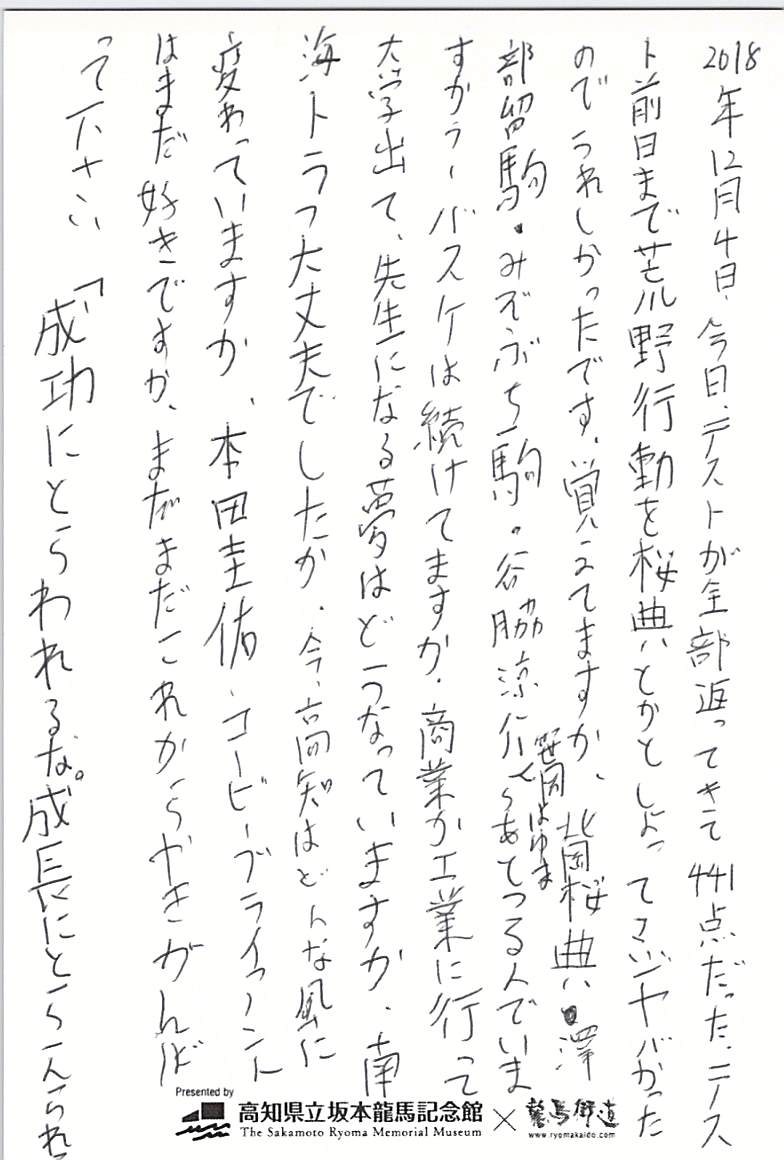 2018年12月4日、今日、テストが全部返ってきて441点だった、テス
ト前日まで荒野行動を桜典とかとしよってさいごヤバかった
のでうれしかったです、覚えてますか、北岡桜典・澤
部留駒・みぞぶち駒・谷脇涼介
笹岡はゆま
つるんでいま
すかうーバスケは続けてますか、商業か工業に行って
大学出て、先生になる夢はどうなっていますか、南
海トラフ大丈夫でしたか、今、高知はどんな風に
変わっていますか、本田圭佑、コービーブライアント
はまだ好きですか、まだまだこれからやきがんば
って下さい「成功にとらわれるな。成長にとらわれ
Presented by
高知県立坂本龍馬記念館 × 龍馬街道
The Sakamoto Ryoma Memorial Museum
www.ryomakaido.com